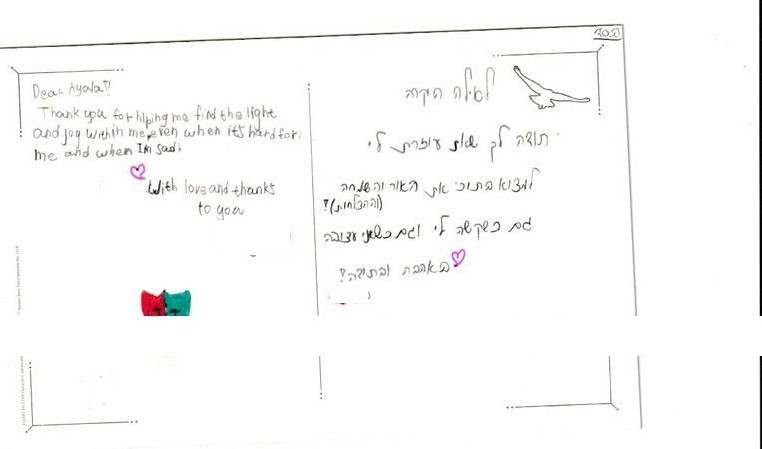 Dear Ayala!!
Thank you for hlping me find the light
and joy within me, even when it's hard for
me and when I'm sad.
With love and thanks
to you
לאילה היקרה
תודה לך שאת עוזרת לי
למצוא בתוכי את האור והשמחה
(וההצלחות)!
גם כשקשה לי וגם כשאני עצובה
באהבה ובתודה!